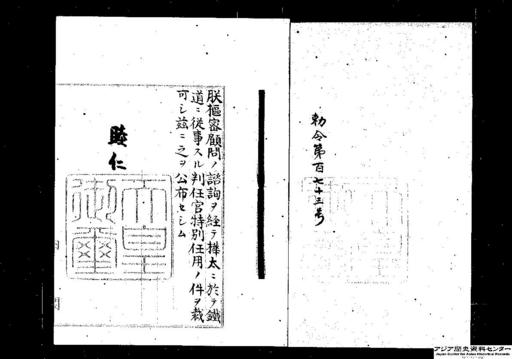 勅令第百七十三号
朕樞密顧問ノ諮詢ヲ経テ樺太ニ於テ鐵
道ニ從事スル判任官特別任用ノ件ヲ裁
可シ茲ニ之ヲ公布セシム
睦仁
天皇
御璽
アジア歴史資料センター
Japan Center for Asian Historical Records